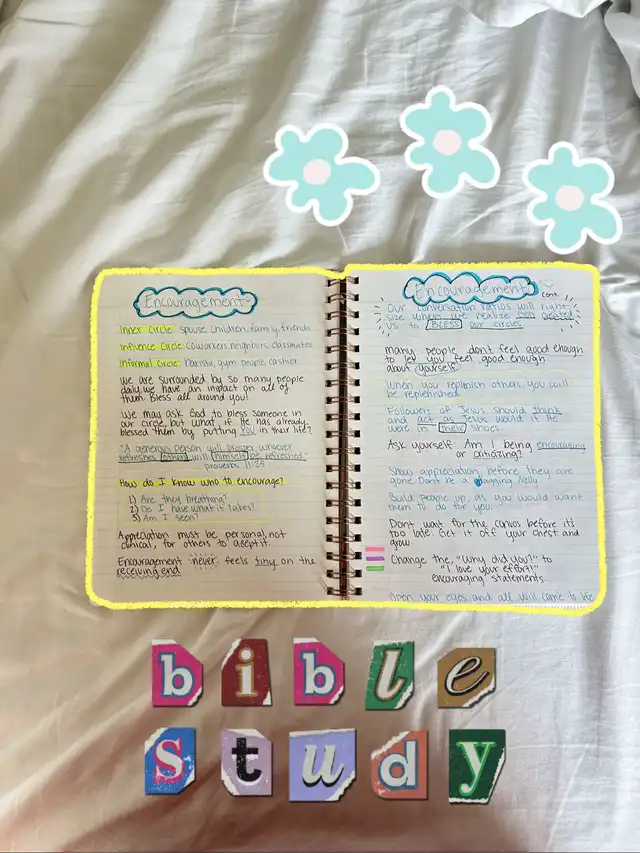 Encouragement
Inner Circle: spouse, children, family, friends
Influence Circle: coworkers, neighbors, classmates
Informal Circle: barista, gym people, cashier
We are surrounded by so many people
daily, we have an impact on all of
them. Bless all around you!
We may ask God to bless someone in
our circle, but what if He has already
blessed them by putting YOU in their life?
"A generous person will prosper whoever
refreshes others will himself be refreshed."
Proverbs 11:25
How do I know who to encourage?
1) Are they breathing?
2) Do I have what it takes?
3) Am I seen?
Appreciation must be personal, not
clinical, for others to accept it.
Encouragement never feels tiny on the
receiving end.
Encouragement
cont.
Our conversation ratios will right
size when we realize God created
us to BLESS our circles
Many people don't feel good enough
to let you feel good enough
about yourself.
When you replenish others, you will
be replenished.
Followers of Jesus should think
and act as Jesus would if He
were in their shoes.
Ask yourself, Am I being encouraging
or critizing?
Show appreciation, before they are
gone. Don't be a Nagging Nelly.
Build people up, as you would want
them to do for you.
Don't wait for the canvas before it's
too late. Get it off your chest and
grow.
Change the, "Why did you?" to
"I love your effort!"
encouraging statements.
Open your eyes and all will come to
bible
study